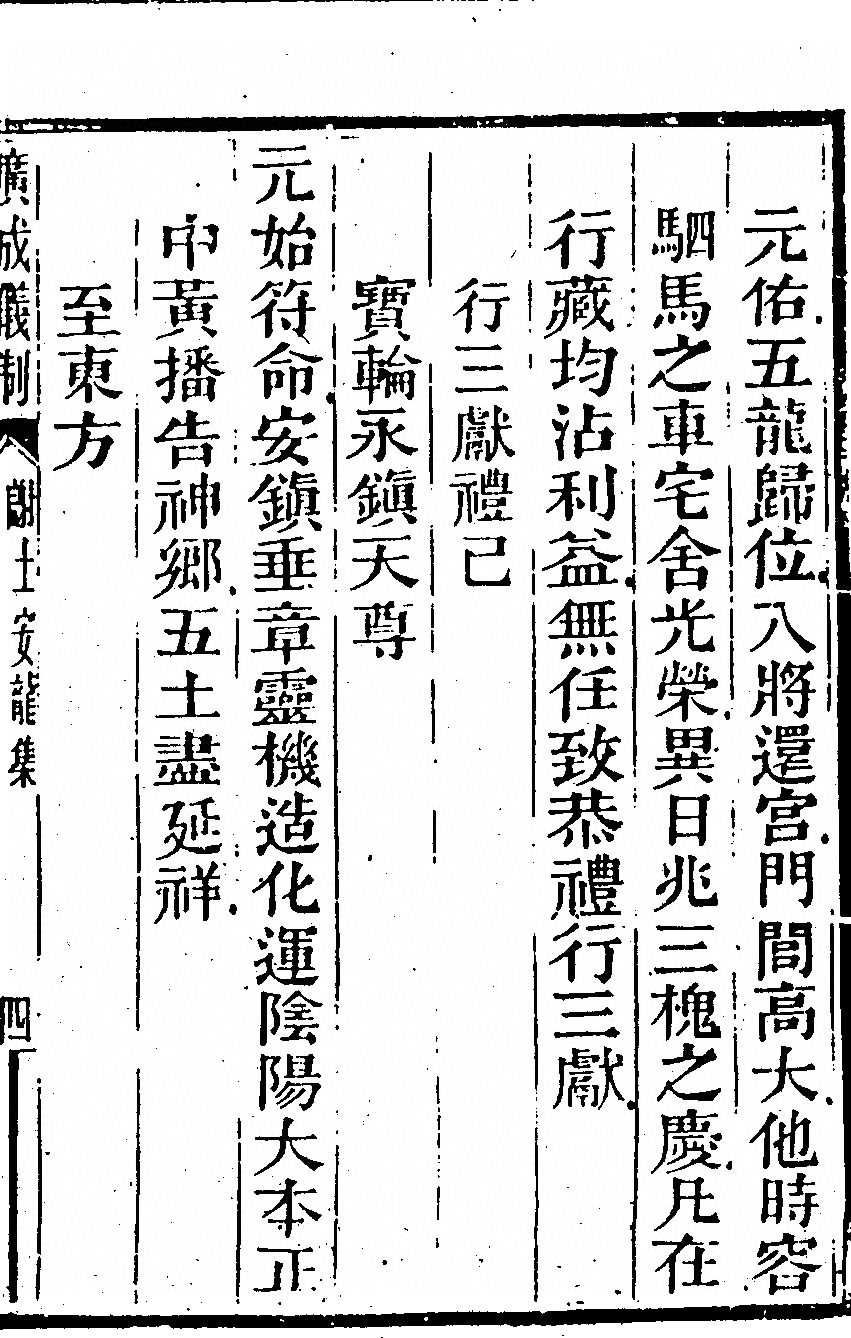 元佑五龍歸位八將還宮門閭高大他時容
駟馬之車宅舍光榮異日兆三槐之慶凡在
行藏均沾利益無任致恭禮行三獻
行三獻禮已
寶輪永鎭天尊
元始符命安鎭垂章靈機造化運陰陽大本正
中黃播告神鄉五土盡延祥
至東方
廣成儀制
謝土安龍集
四